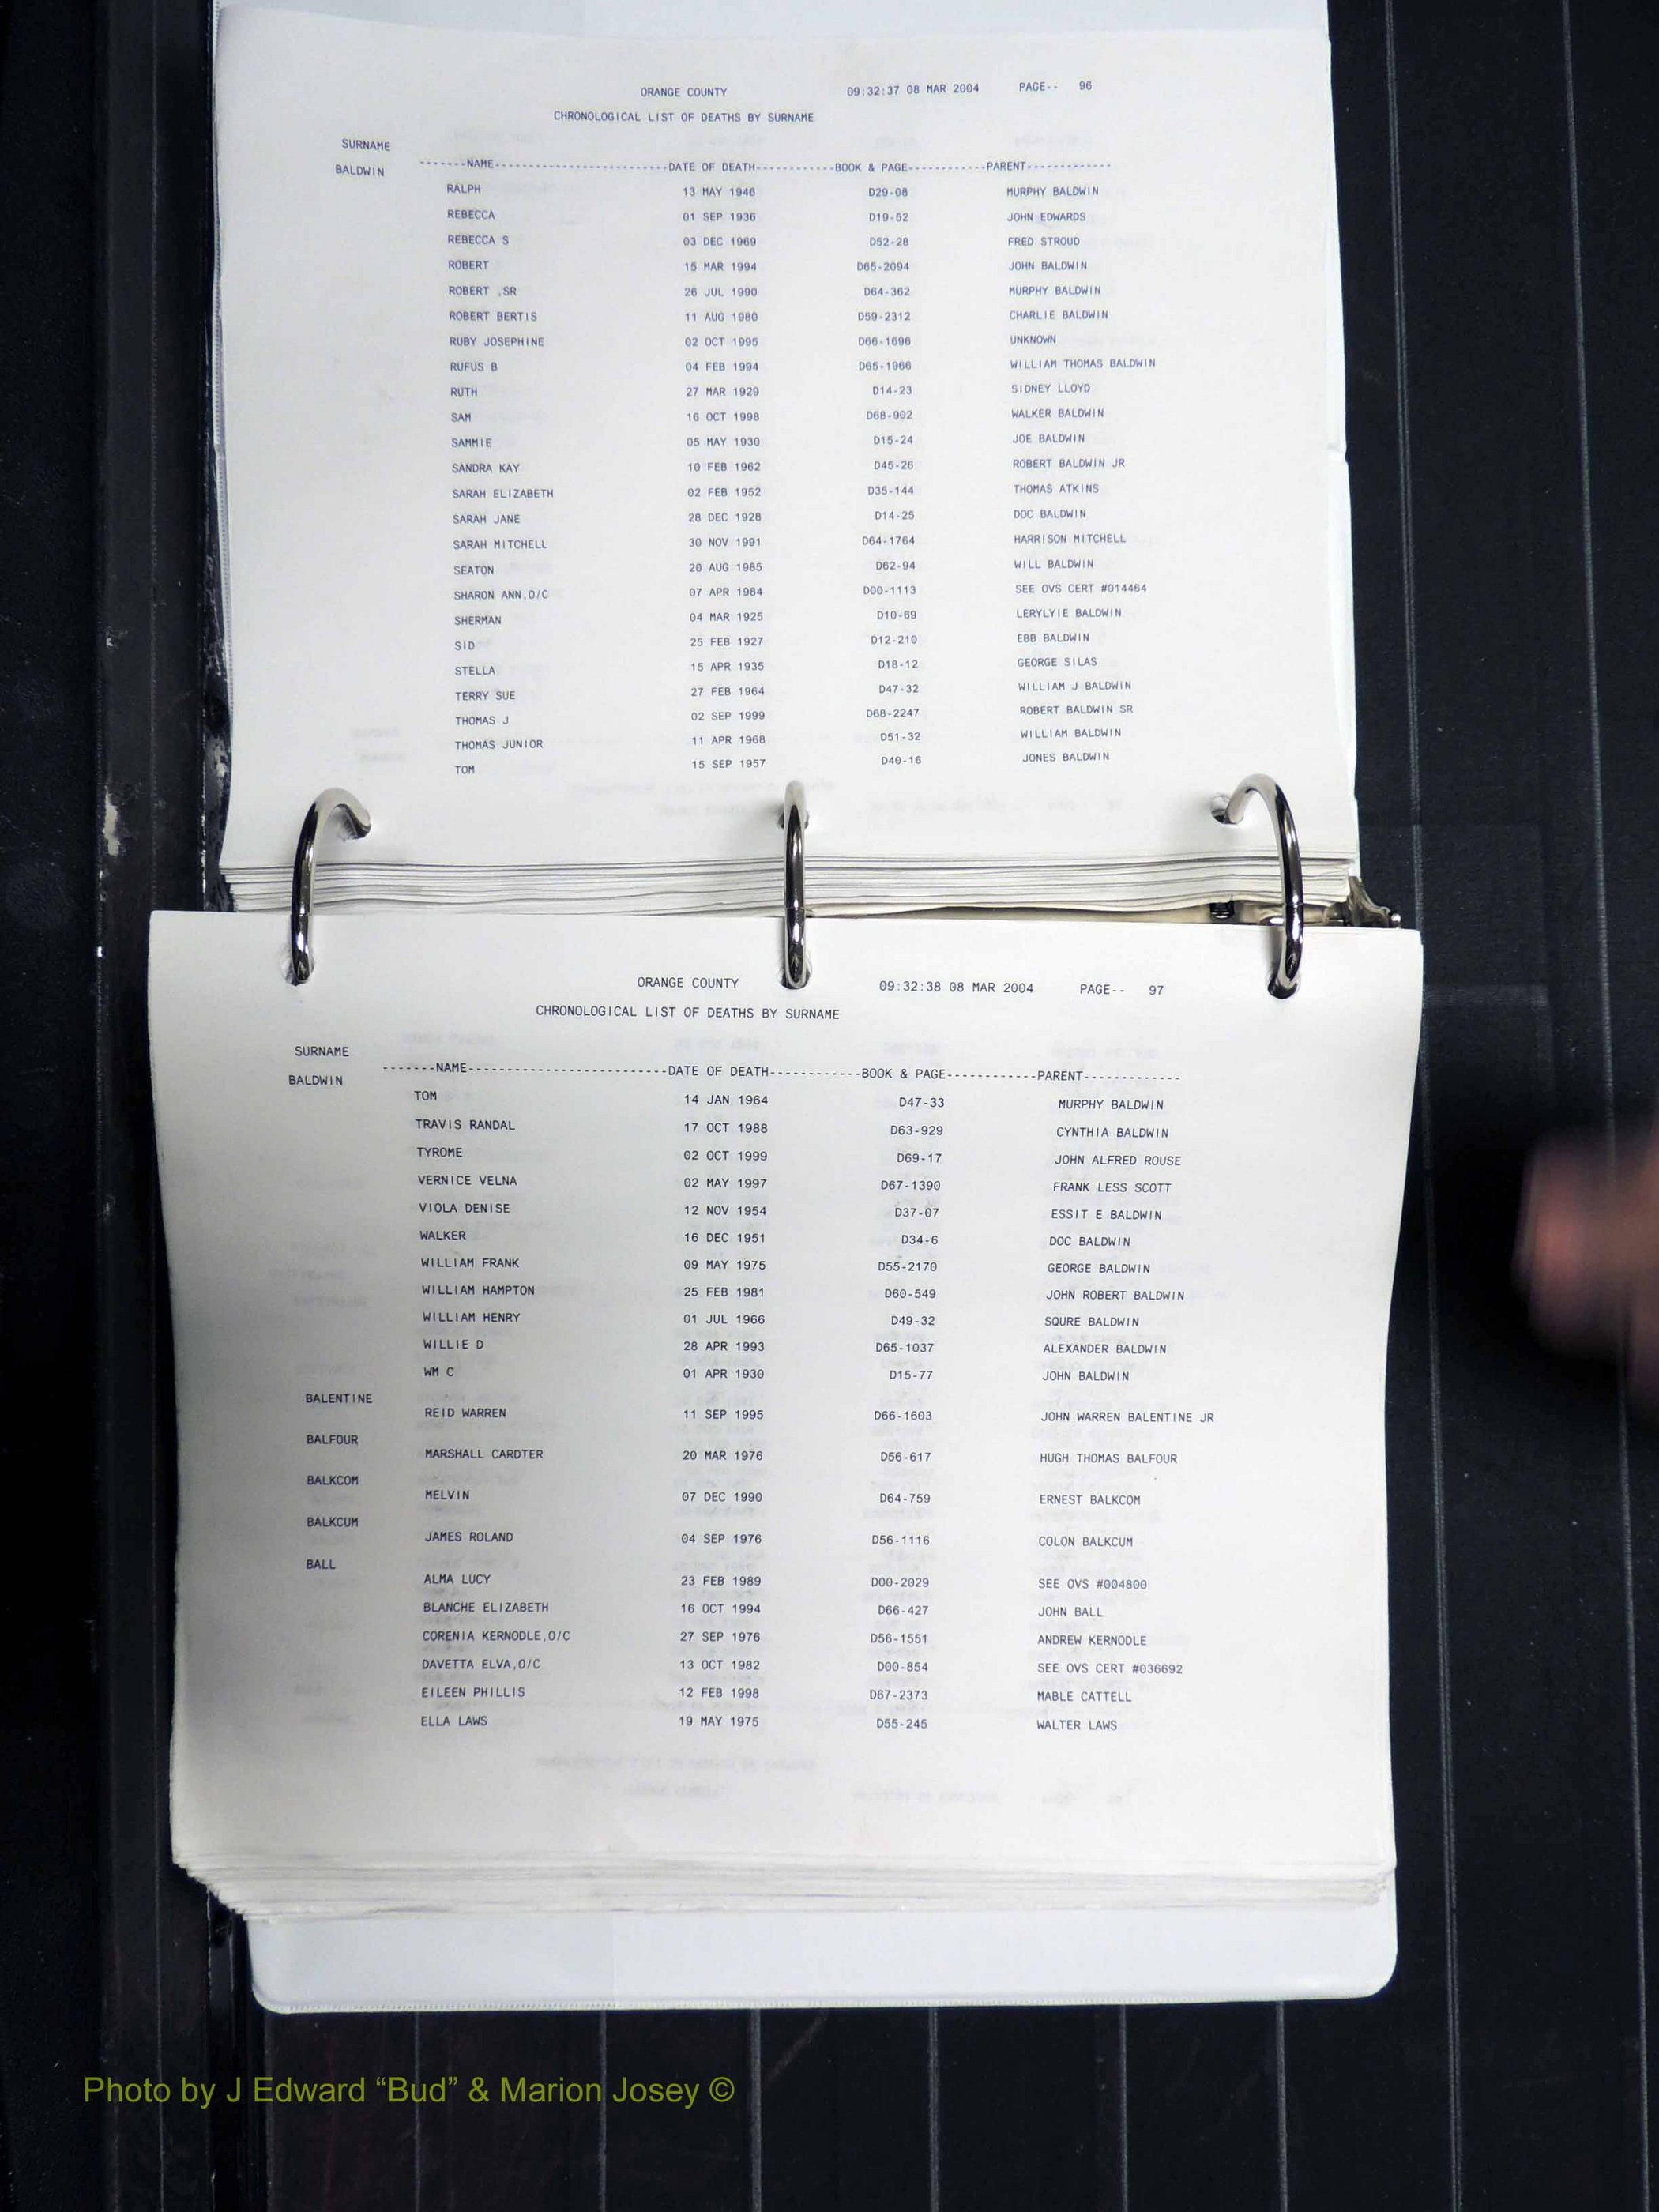 ORANGE COUNTY 09:32:37 08 MAR 2004 PAGE-- 96
CHRONOLOGICAL LIST OF DEATHS BY SURNAME
SURNAME
-------NAME--------------------------DATE OF DEATH------------BOOK & PAGE------------PARENT-------------
BALDWIN
RALPH 13 MAY 1946 D29-08 MURPHY BALDWIN
REBECCA 01 SEP 1936 D19-52 JOHN EDWARDS
REBECCA S 03 DEC 1969 D52-28 FRED STROUD
ROBERT 15 MAR 1994 D65-2094 JOHN BALDWIN
ROBERT ,SR 26 JUL 1990 D64-362 MURPHY BALDWIN
ROBERT BERTIS 11 AUG 1980 D59-2312 CHARLIE BALDWIN
RUBY JOSEPHINE 02 OCT 1995 D66-1696 UNKNOWN
RUFUS B 04 FEB 1994 D65-1966 WILLIAM THOMAS BALDWIN
RUTH 27 MAR 1929 D14-23 SIDNEY LLOYD
SAM 16 OCT 1998 D68-902 WALKER BALDWIN
SAMMIE 05 MAY 1930 D15-24 JOE BALDWIN
SANDRA KAY 10 FEB 1962 D45-26 ROBERT BALDWIN JR
SARAH ELIZABETH 02 FEB 1952 D35-144 THOMAS ATKINS
SARAH JANE 28 DEC 1928 D14-25 DOC BALDWIN
SARAH MITCHELL 30 NOV 1991 D64-1764 HARRISON MITCHELL
SEATON 20 AUG 1985 D62-94 WILL BALDWIN
SHARON ANN,O/C 07 APR 1984 D00-1113 SEE OVS CERT #014464
SHERMAN 04 MAR 1925 D10-69 LERYLYIE BALDWIN
SID 25 FEB 1927 D12-210 EBB BALDWIN
STELLA 15 APR 1935 D18-12 GEORGE SILAS
TERRY SUE 27 FEB 1964 D47-32 WILLIAM J BALDWIN
THOMAS J 02 SEP 1999 D68-2247 ROBERT BALDWIN SR
THOMAS JUNIOR 11 APR 1968 D51-32 WILLIAM BALDWIN
TOM 15 SEP 1957 D40-16 JONES BALDWIN
ORANGE COUNTY 09:32:38 08 MAR 2004 PAGE-- 97
CHRONOLOGICAL LIST OF DEATHS BY SURNAME
SURNAME
-------NAME--------------------------DATE OF DEATH------------BOOK & PAGE------------PARENT-------------
BALDWIN
TOM 14 JAN 1964 D47-33 MURPHY BALDWIN
TRAVIS RANDAL 17 OCT 1988 D63-929 CYNTHIA BALDWIN
TYROME 02 OCT 1999 D69-17 JOHN ALFRED ROUSE
VERNICE VELNA 02 MAY 1997 D67-1390 FRANK LESS SCOTT
VIOLA DENISE 12 NOV 1954 D37-07 ESSIT E BALDWIN
WALKER 16 DEC 1951 D34-6 DOC BALDWIN
WILLIAM FRANK 09 MAY 1975 D55-2170 GEORGE BALDWIN
WILLIAM HAMPTON 25 FEB 1981 D60-549 JOHN ROBERT BALDWIN
WILLIAM HENRY 01 JUL 1966 D49-32 SQURE BALDWIN
WILLIE D 28 APR 1993 D65-1037 ALEXANDER BALDWIN
WM C 01 APR 1930 D15-77 JOHN BALDWIN
BALENTINE
REID WARREN 11 SEP 1995 D66-1603 JOHN WARREN BALENTINE JR
BALFOUR
MARSHALL CARDTER 20 MAR 1976 D56-617 HUGH THOMAS BALFOUR
BALKCOM
MELVIN 07 DEC 1990 D64-759 ERNEST BALKCOM
BALKCUM
JAMES ROLAND 04 SEP 1976 D56-1116 COLON BALKCUM
BALL
ALMA LUCY 23 FEB 1989 D00-2029 SEE OVS #004800
BLANCHE ELIZABETH 16 OCT 1994 D66-427 JOHN BALL
CORENIA KERNODLE,O/C 27 SEP 1976 D56-1551 ANDREW KERNODLE
DAVETTA ELVA,O/C 13 OCT 1982 D00-854 SEE OVS CERT #036692
EILEEN PHILLIS 12 FEB 1998 D67-2373 MABLE CATTELL
ELLA LAWS 19 MAY 1975 D55-245 WALTER LAWS
Photo by J Edward “Bud” & Marion Josey ©